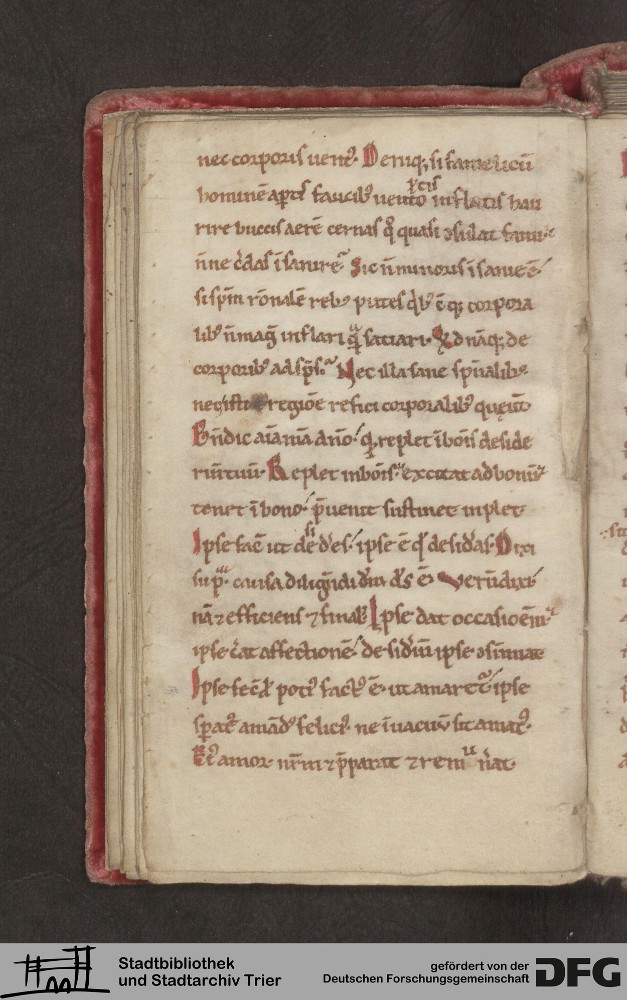 nec corporis uent⁹. Deniq; si famelicū
hominē aꝑtis faucib⁹ uento inflatis hau
rire buccis aerē cernas q̊ quasi ɔsulat fami
n̄ne c̓das īsanire. Sic n̄ minoris īsanie ē
si sp̄m rōnalē reb⁹ putes q̇b⁹ēq; corpora
lib⁹ n̄ magis inflari quā satiari. Qd nāq; de
corporib⁹ ad sp̄s. Nec illa sane sp̄ualib⁹
regiōe refici corporalib⁹ queunt
Bn̄dic aīa mā dn̄o. q̇ replet ībonis deside
riū tuū. Replet in bonis excitat ad bonū
tenet ī bono. p̄uenit sustinet inplet.
Ipse facit ut desideres. ipse ē qd desidas. Dixi
sup̄ causa diligendi dm̄ ds̄ ē. Verū dixi
nā ⁊ efficiens ⁊ finalis. Ipse dat occasiōem
ipse c̓at affectionē. desideriū ipse ɔsūmat
Ipse fec̄ ł poti⁹ fact⁹ ē ut amaret̄. ipse
sperat amād⁹ felici⁹. ne ī uacuū sit amat⁹.
Ei⁹ amor nr̄m ⁊ p̄parat ⁊ remunerat
Stadtbibliothek
und Stadtarchiv Trier
gefördert von der
Deutschen Forschungsgemeinschaft
DFG